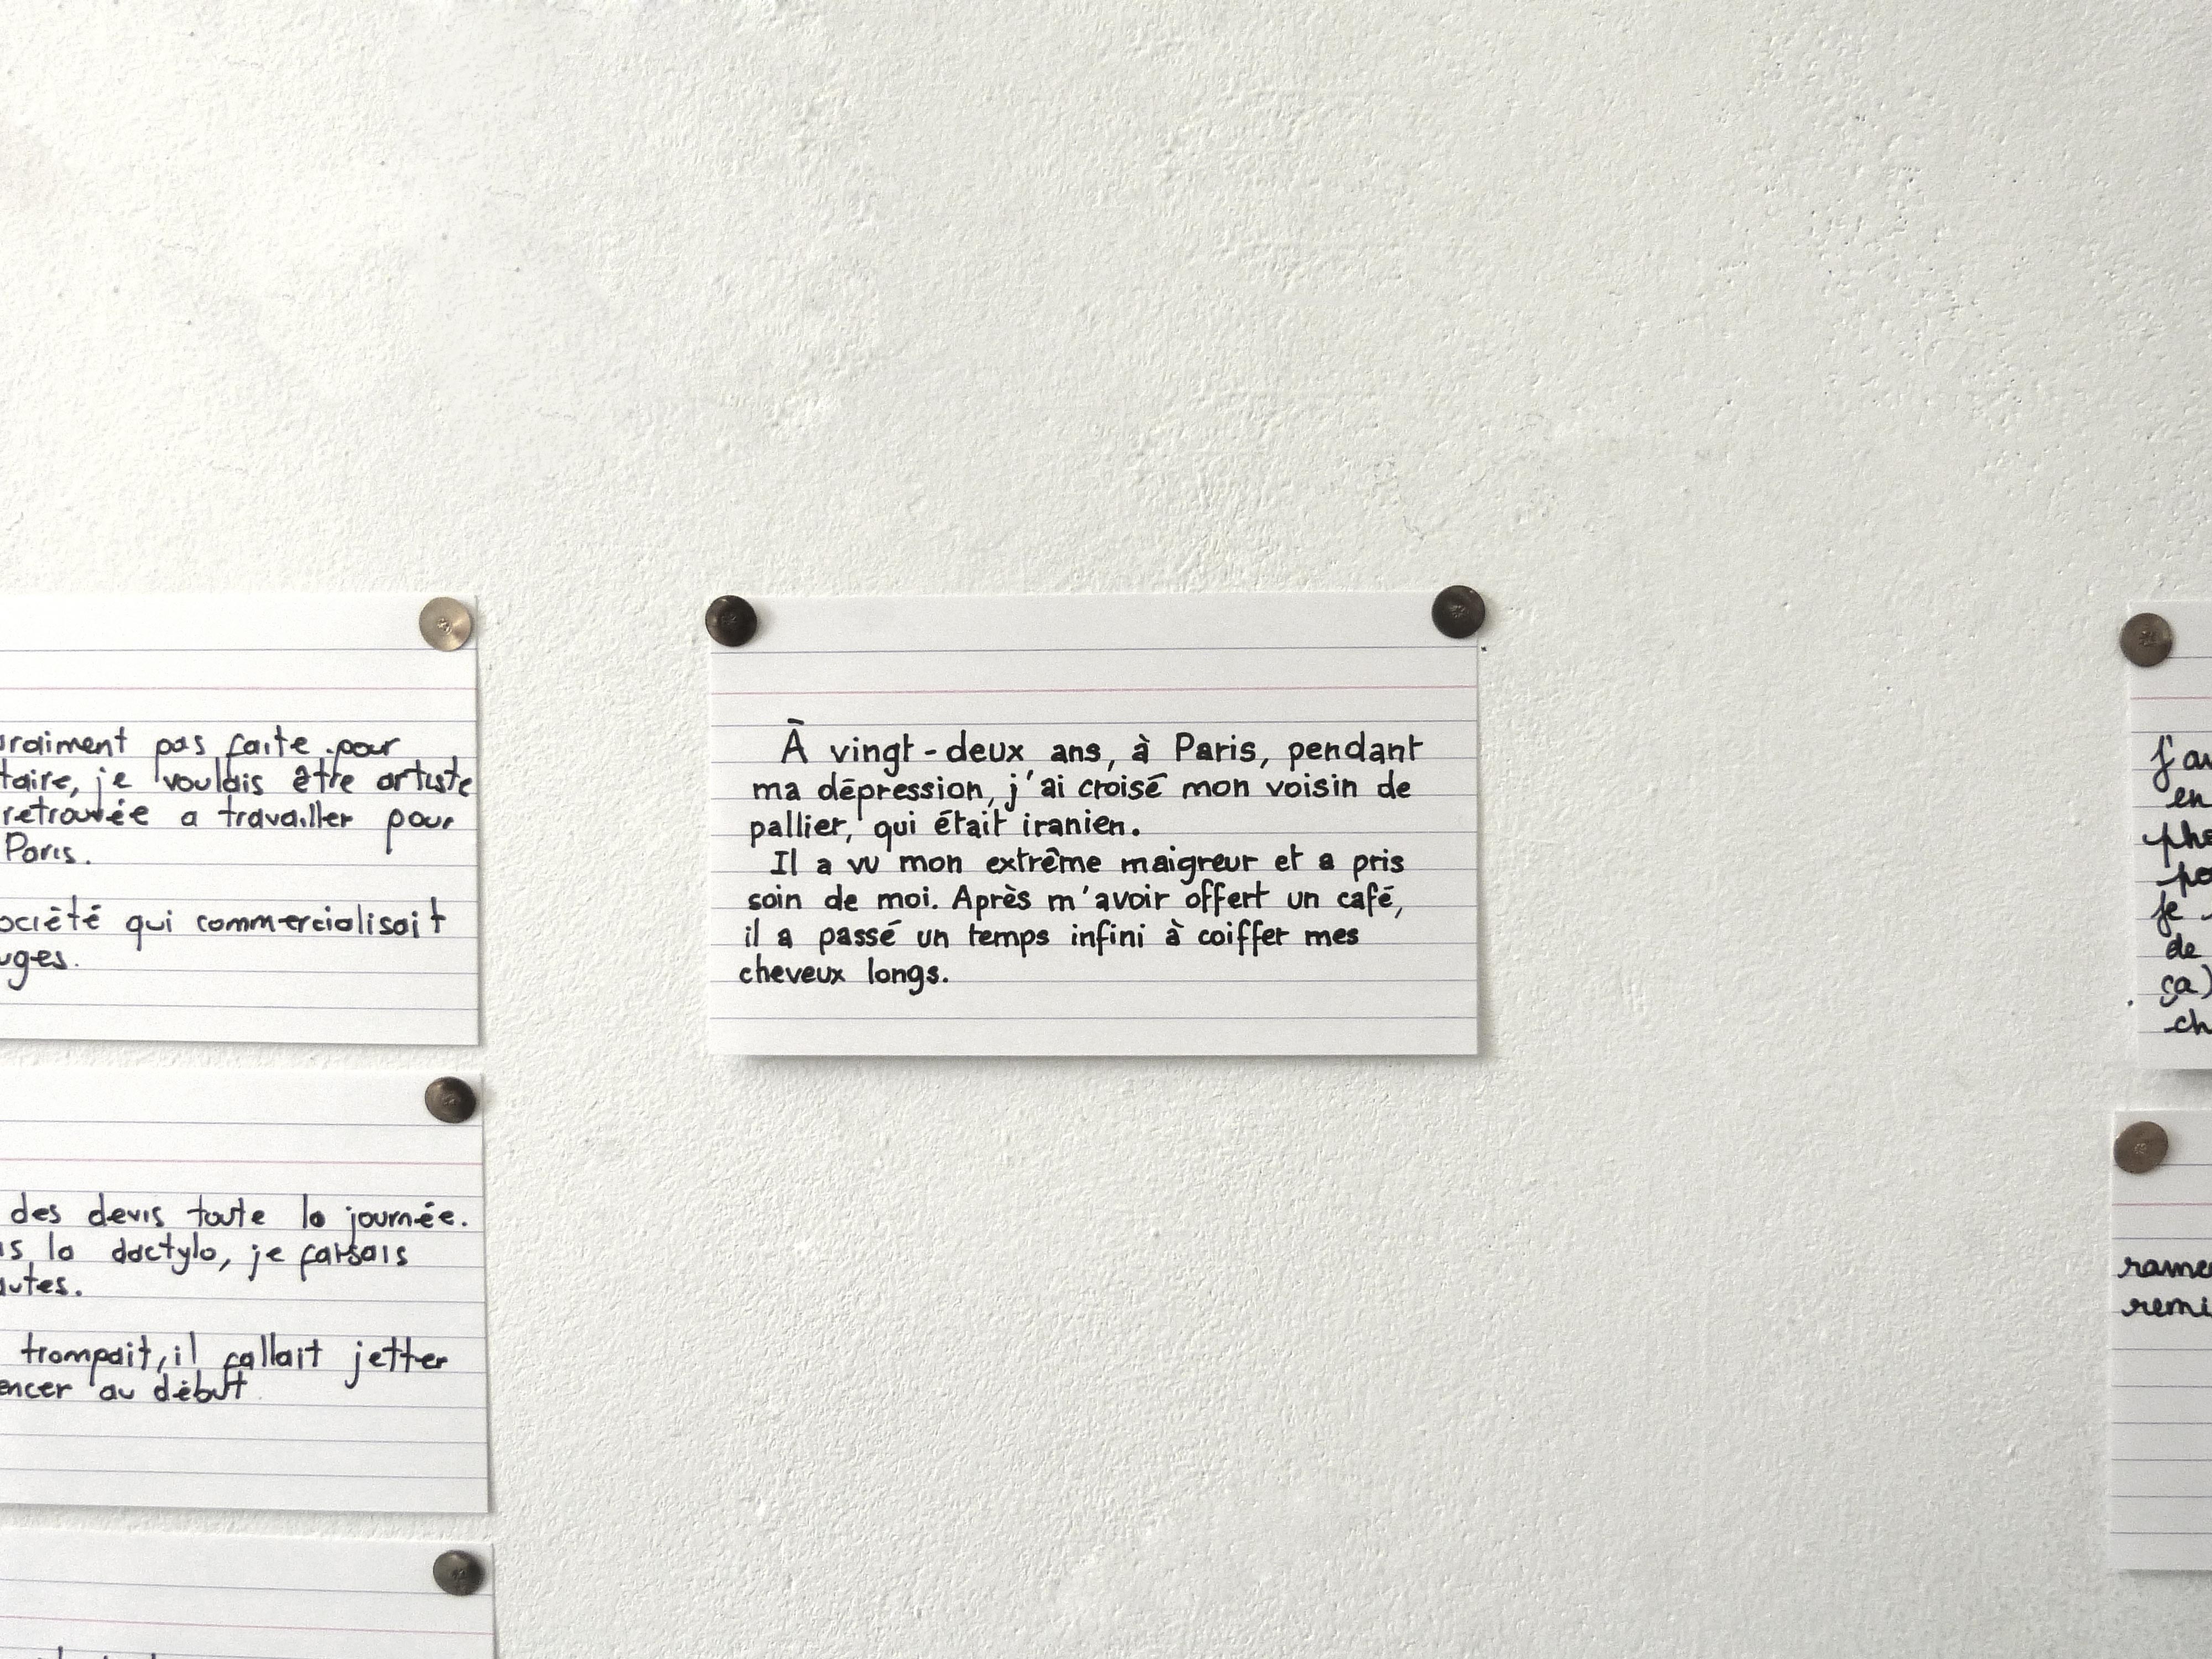 pas faite pour
je voulais être artiste
a travailler pour
Paris.
qui commercialisait
des devis toute la journée.
la dactylo, je faisais
trompait, il fallait jetter
au début.
À vingt-deux ans, à Paris, pendant
ma dépression, j'ai croisé mon voisin de
pallier, qui était iranien.
Il a vu mon extrême maigreur et a pris
soin de moi. Après m'avoir offert un café,
il a passé un temps infini à coiffer mes
cheveux longs.
en
je
de
ça)